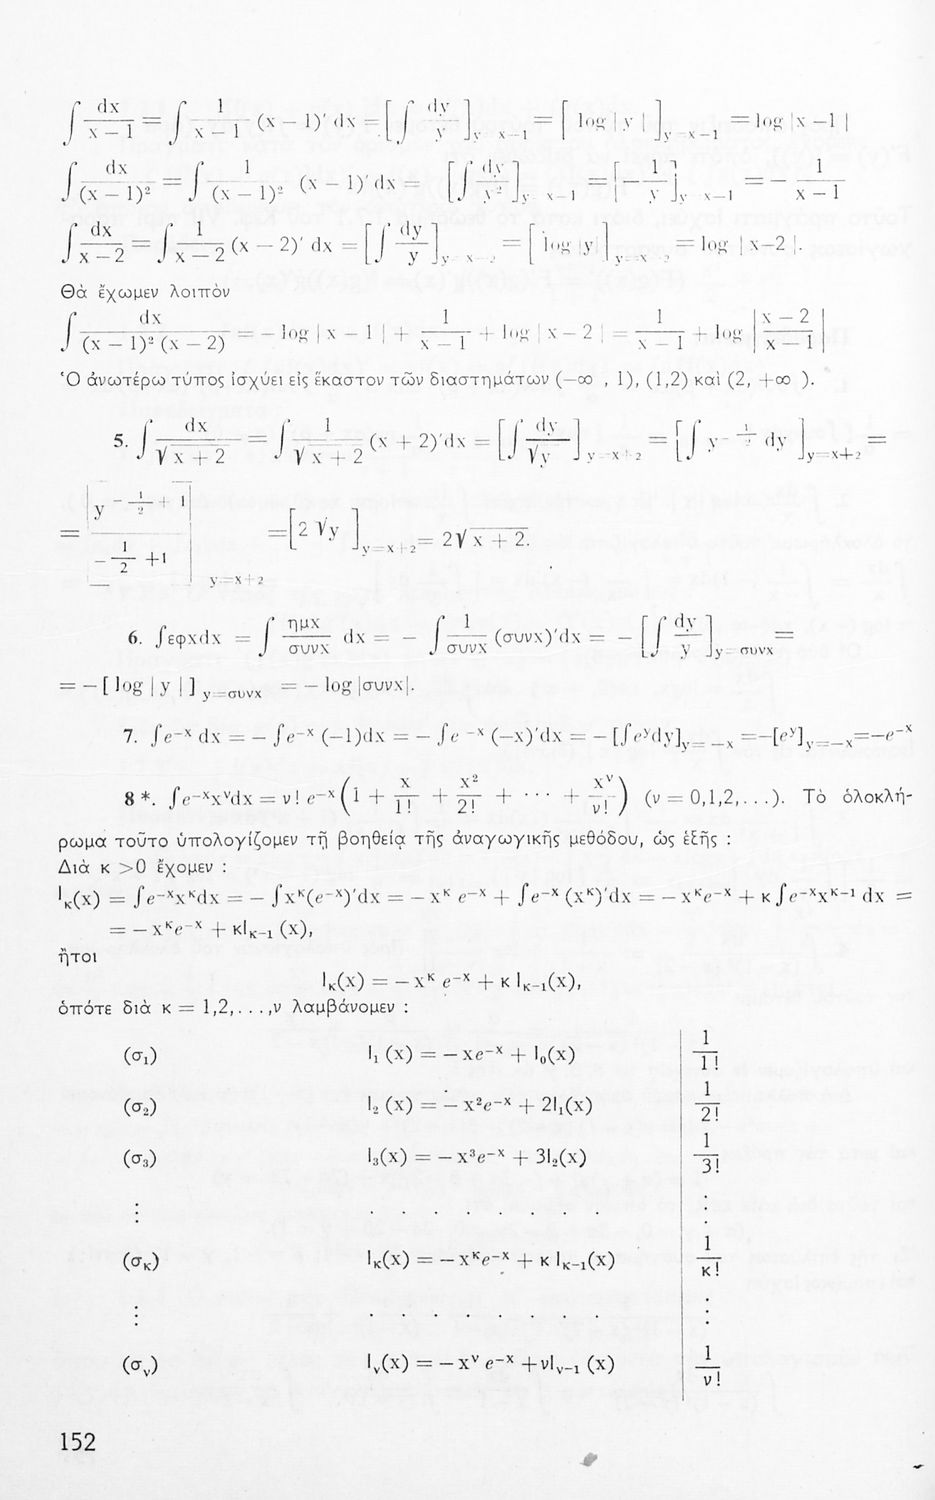 ∫ dx/(x − 1) = ∫ 1/(x − 1) (x − 1)′ dx = [ ∫ dy/y ]y=x−1 = [ log | y | ]y=x−1 = log |x −1 |
∫ dx/(x − 1)² = ∫ 1/(x − 1)² (x − 1)′ dx = [ ∫ dy/y² ]y=x−1 = [ − 1/y ]y=x−1 = − 1/(x − 1)
∫ dx/(x − 2) = ∫ 1/(x − 2) (x − 2)′ dx = [ ∫ dy/y ]y=x−2 = [ log |y| ]y=x−2 = log | x−2 |.
Θὰ ἔχωμεν λοιπὸν
∫ dx/((x − 1)² (x − 2)) = − log | x − 1 | + 1/(x − 1) + log | x − 2 | = 1/(x − 1) + log | (x − 2)/(x − 1) |
Ὁ ἀνωτέρω τύπος ἰσχύει εἰς ἕκαστον τῶν διαστημάτων (−∞ , 1), (1,2) καὶ (2, +∞ ).
5. ∫ dx/√(x + 2) = ∫ 1/√(x + 2) (x + 2)′dx = [ ∫ dy/√y ]y=x+2 = [ ∫ y^(−1/2) dy ]y=x+2 =
= [ y^(−1/2 + 1) / (−1/2 +1) ]y=x+2 = [ 2 √y ]y=x+2 = 2√(x + 2).
6. ∫εφxdx = ∫ ημx/συνx dx = − ∫ 1/συνx (συνx)′dx = − [ ∫ dy/y ]y=συνx =
= − [ log | y | ] y=συνx = − log |συνx|.
7. ∫e⁻ˣ dx = − ∫e⁻ˣ (−1)dx = − ∫e⁻ˣ (−x)′dx = − [∫eʸdy]y=−x =−[eʸ]y=−x=−e⁻ˣ
8 *. ∫e⁻ˣxᵛdx = ν! e⁻ˣ (1 + x/1! + x²/2! + ··· + xᵛ/ν!) (ν = 0,1,2,. . .). Τὸ ὁλοκλή-
ρωμα τοῦτο ὑπολογίζομεν τῇ βοηθείᾳ τῆς ἀναγωγικῆς μεθόδου, ὡς ἑξῆς :
Διὰ κ >0 ἔχομεν :
Iκ(x) = ∫e⁻ˣxᵏdx = − ∫xᵏ(e⁻ˣ)′dx = − xᵏ e⁻ˣ + ∫e⁻ˣ (xᵏ)′dx = − xᵏe⁻ˣ + κ∫e⁻ˣxᵏ⁻¹ dx =
= − xᵏe⁻ˣ + κIκ₋₁ (x),
ἤτοι
Iκ(x) = − xᵏ e⁻ˣ + κ Iκ₋₁(x),
ὁπότε διὰ κ = 1,2,. . .,ν λαμβάνομεν :
(σ₁) I₁ (x) = − xe⁻ˣ + I₀(x) 1/1!
(σ₂) I₂ (x) = − x²e⁻ˣ + 2I₁(x) 1/2!
(σ₃) I₃(x) = − x³e⁻ˣ + 3I₂(x) 1/3!
⋮ ⋮
(σκ) Iκ(x) = − xᵏe⁻ˣ + κ Iκ₋₁(x) 1/κ!
⋮ . . . . . . . . . . ⋮
(σν) Iν(x) = − xᵛ e⁻ˣ +νIν₋₁ (x) 1/ν!
152